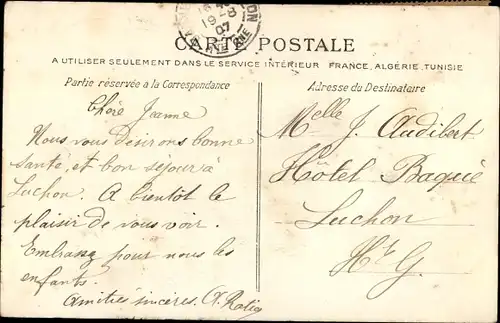 19-8
07
CARTE POSTALE
A UTILISER SEULEMENT DANS LE SERVICE INTÉRIEUR FRANCE, ALGÉRIE, TUNISIE
Partie réservée à la Correspondance
Chère Jeanne
Nous vous désirons bonne
santé, et bon séjour à
Luchon. A bientôt le
plaisir de vous voir.
Embrassez pour nous les
enfants.
Amitiés sincères. A.
Adresse du Destinataire
Melle J. Audibert
Hôtel Baqué
Luchon
Hte G.